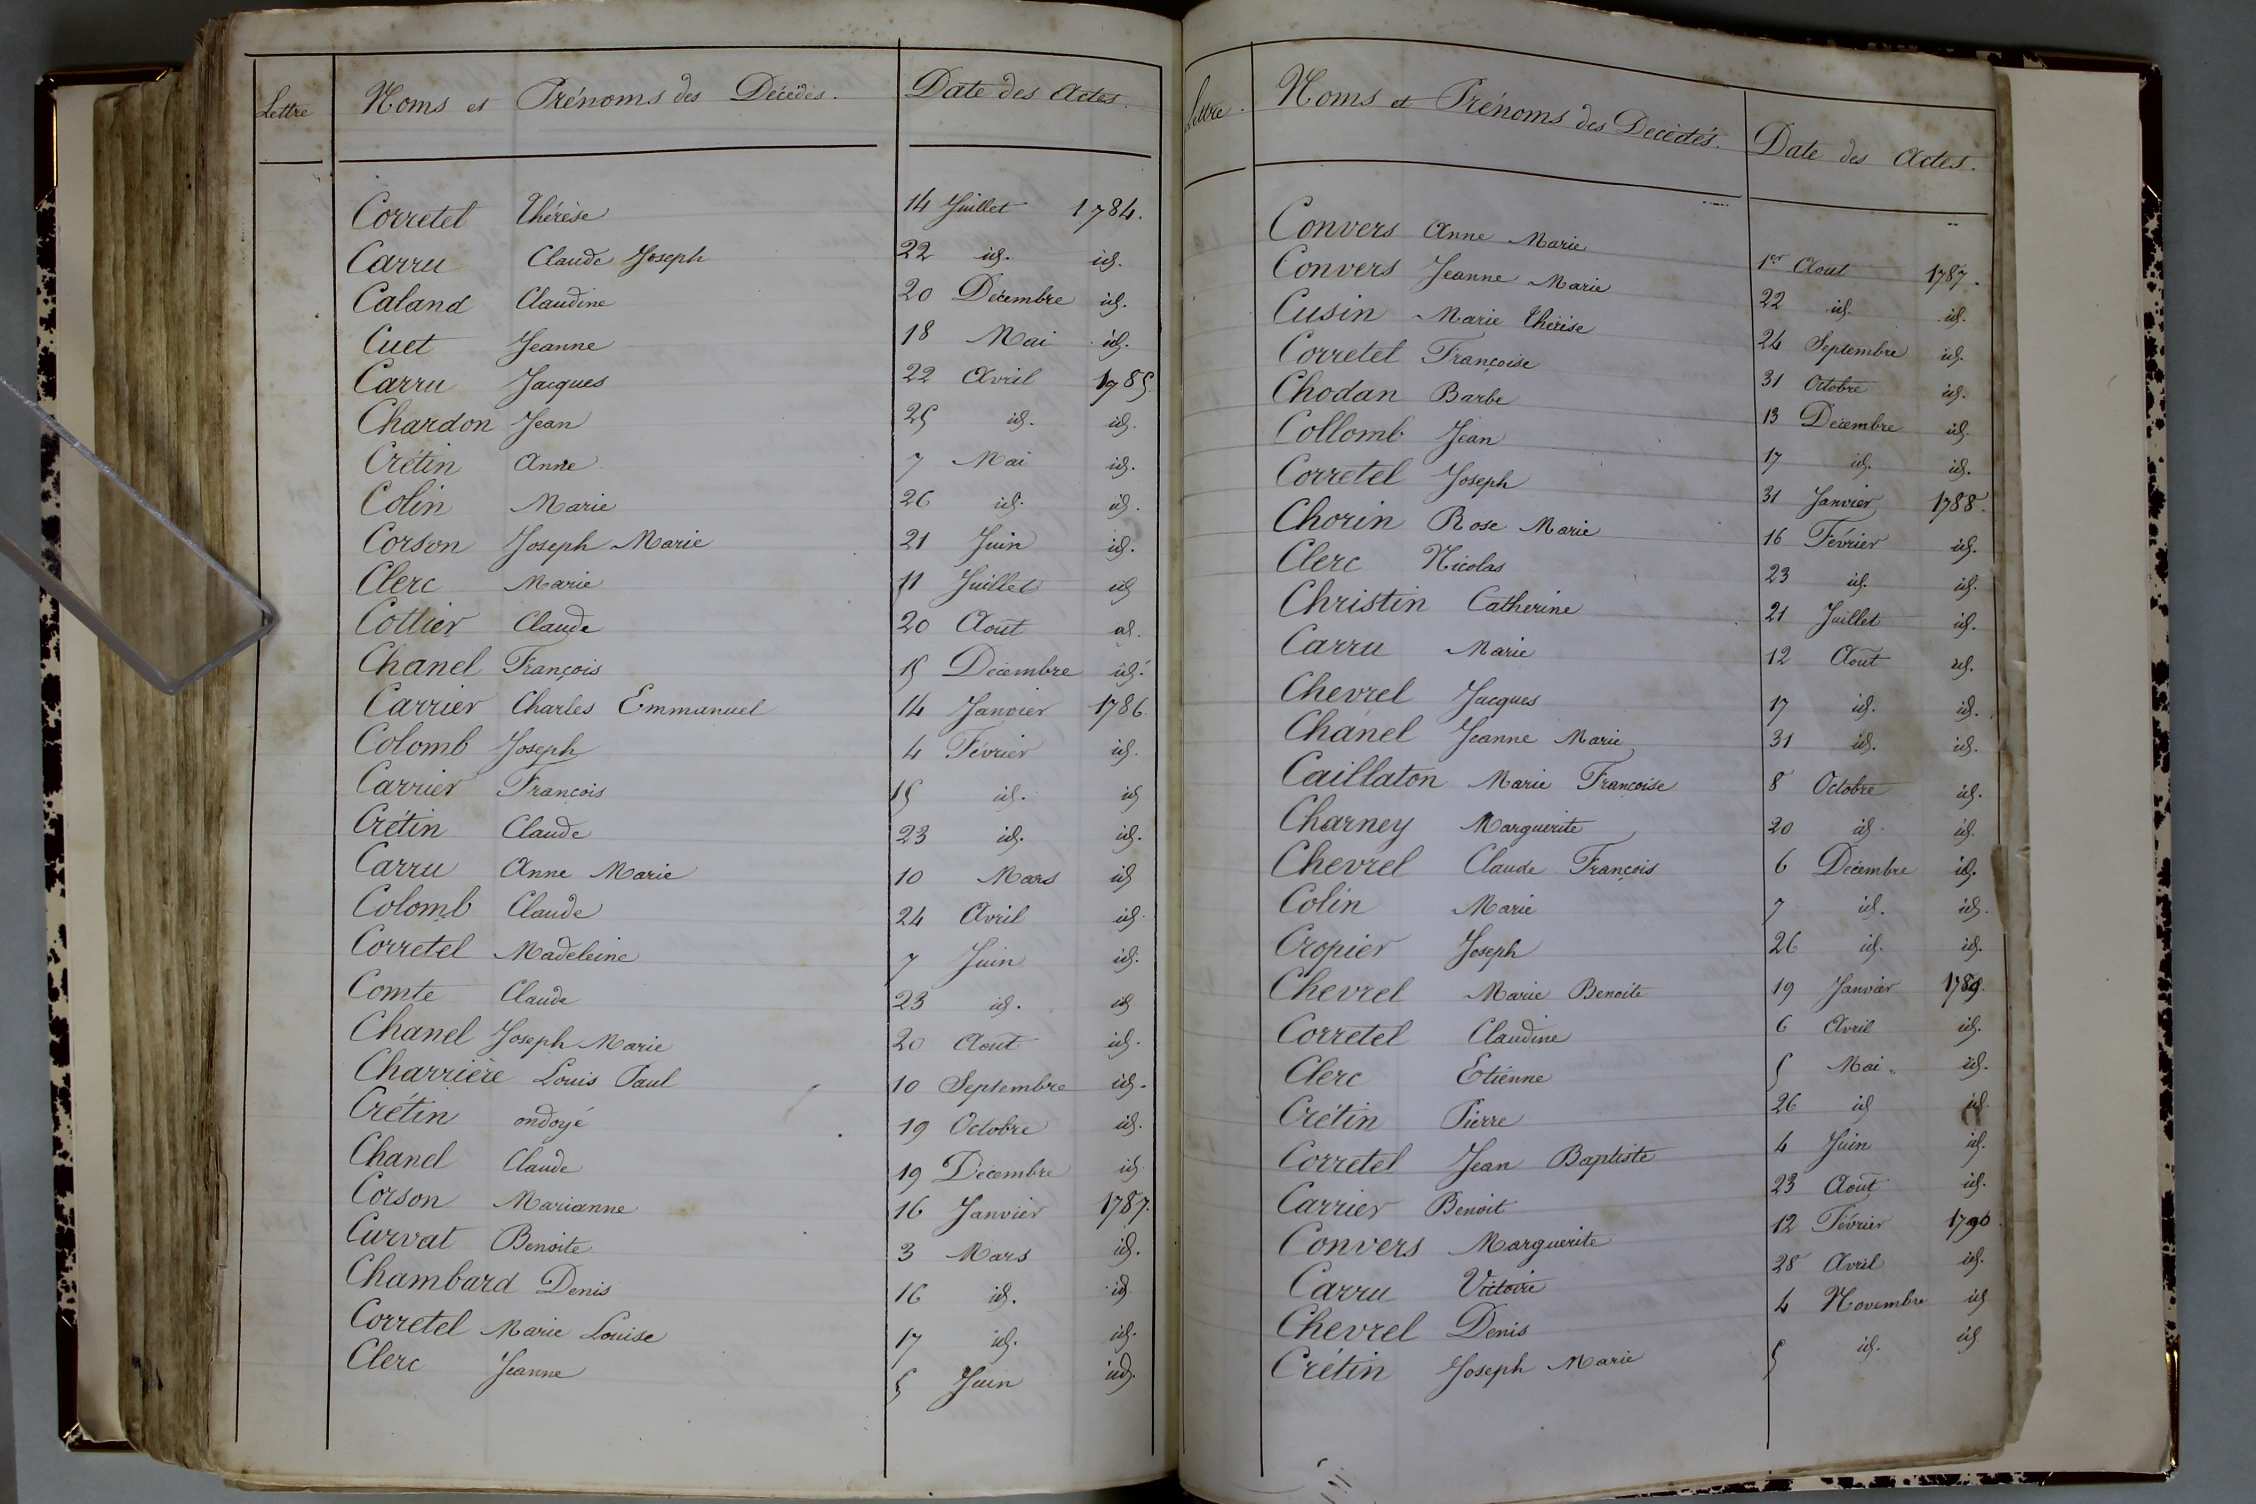 Lettre Noms et Prénoms des Décédés. Date des Actes.
Corretel Thérèse 14 Juillet 1784.
Carru Claude Joseph 22 id. id.
Caland Claudine 20 Décembre id.
Cuet Jeanne 18 Mai id.
Carru Jacques 22 Avril 1785.
Chardon Jean 25 id. id.
Crétin Anne 7 Mai id.
Colin Marie 26 id. id.
Corson Joseph Marie 21 Juin id.
Clerc Marie 11 Juillet id
Collier Claude 20 Aout id.
Chanel François 15 Décembre id.
Carrier Charles Emmanuel 14 Janvier 1786
Colomb Joseph 4 Février id.
Carrier François 15 id. id
Crétin Claude 23 id. id.
Carru Anne Marie 10 Mars id
Colomb Claude 24 Avril id.
Corretel Madeleine 7 Juin id.
Comte Claude 23 id. id
Chanel Joseph Marie 20 Aout id.
Charrière Louis Paul 10 Septembre id.
Crétin ondoyé 19 Octobre id.
Chanel Claude 19 Décembre id
Corson Marianne 16 Janvier 1787.
Curvat Benoite 3 Mars id.
Chambard Denis 16 id. id
Corretel Marie Louise 17 id. id.
Clerc Jeanne 5 Juin id.
Lettre. Noms et Prénoms des Décédés. Date des Actes.
Convers Anne Marie 1er Aout 1787.
Convers Jeanne Marie 22 id. id.
Cusin Marie Thérèse 24 Septembre id.
Corretel Françoise 31 Octobre id.
Chodan Barbe 13 Décembre id.
Collomb Jean 17 id. id.
Corretel Joseph 31 Janvier 1788.
Chorin Rose Marie 16 Février id.
Clerc Nicolas 23 id. id.
Christin Catherine 21 Juillet id.
Carru Marie 12 Aout id.
Chevrel Jacques 17 id. id.
Chanel Jeanne Marie 31 id. id.
Caillaton Marie Françoise 8 Octobre id.
Charney Marguerite 20 id. id.
Chevrel Claude François 6 Décembre id.
Colin Marie 7 id. id.
Cropier Joseph 26 id. id.
Chevrel Marie Benoite 19 Janvier 1789.
Corretel Claudine 6 Avril id.
Clerc Etienne 5 Mai id.
Crétin Pierre 26 id id.
Corretel Jean Baptiste 4 Juin id.
Carrier Benoit 23 Aout id.
Convers Marguerite 12 Février 1790.
Carru Victoire 28 Avril id.
Chevrel Denis 4 Novembre id
Crétin Joseph Marie 5 id. id